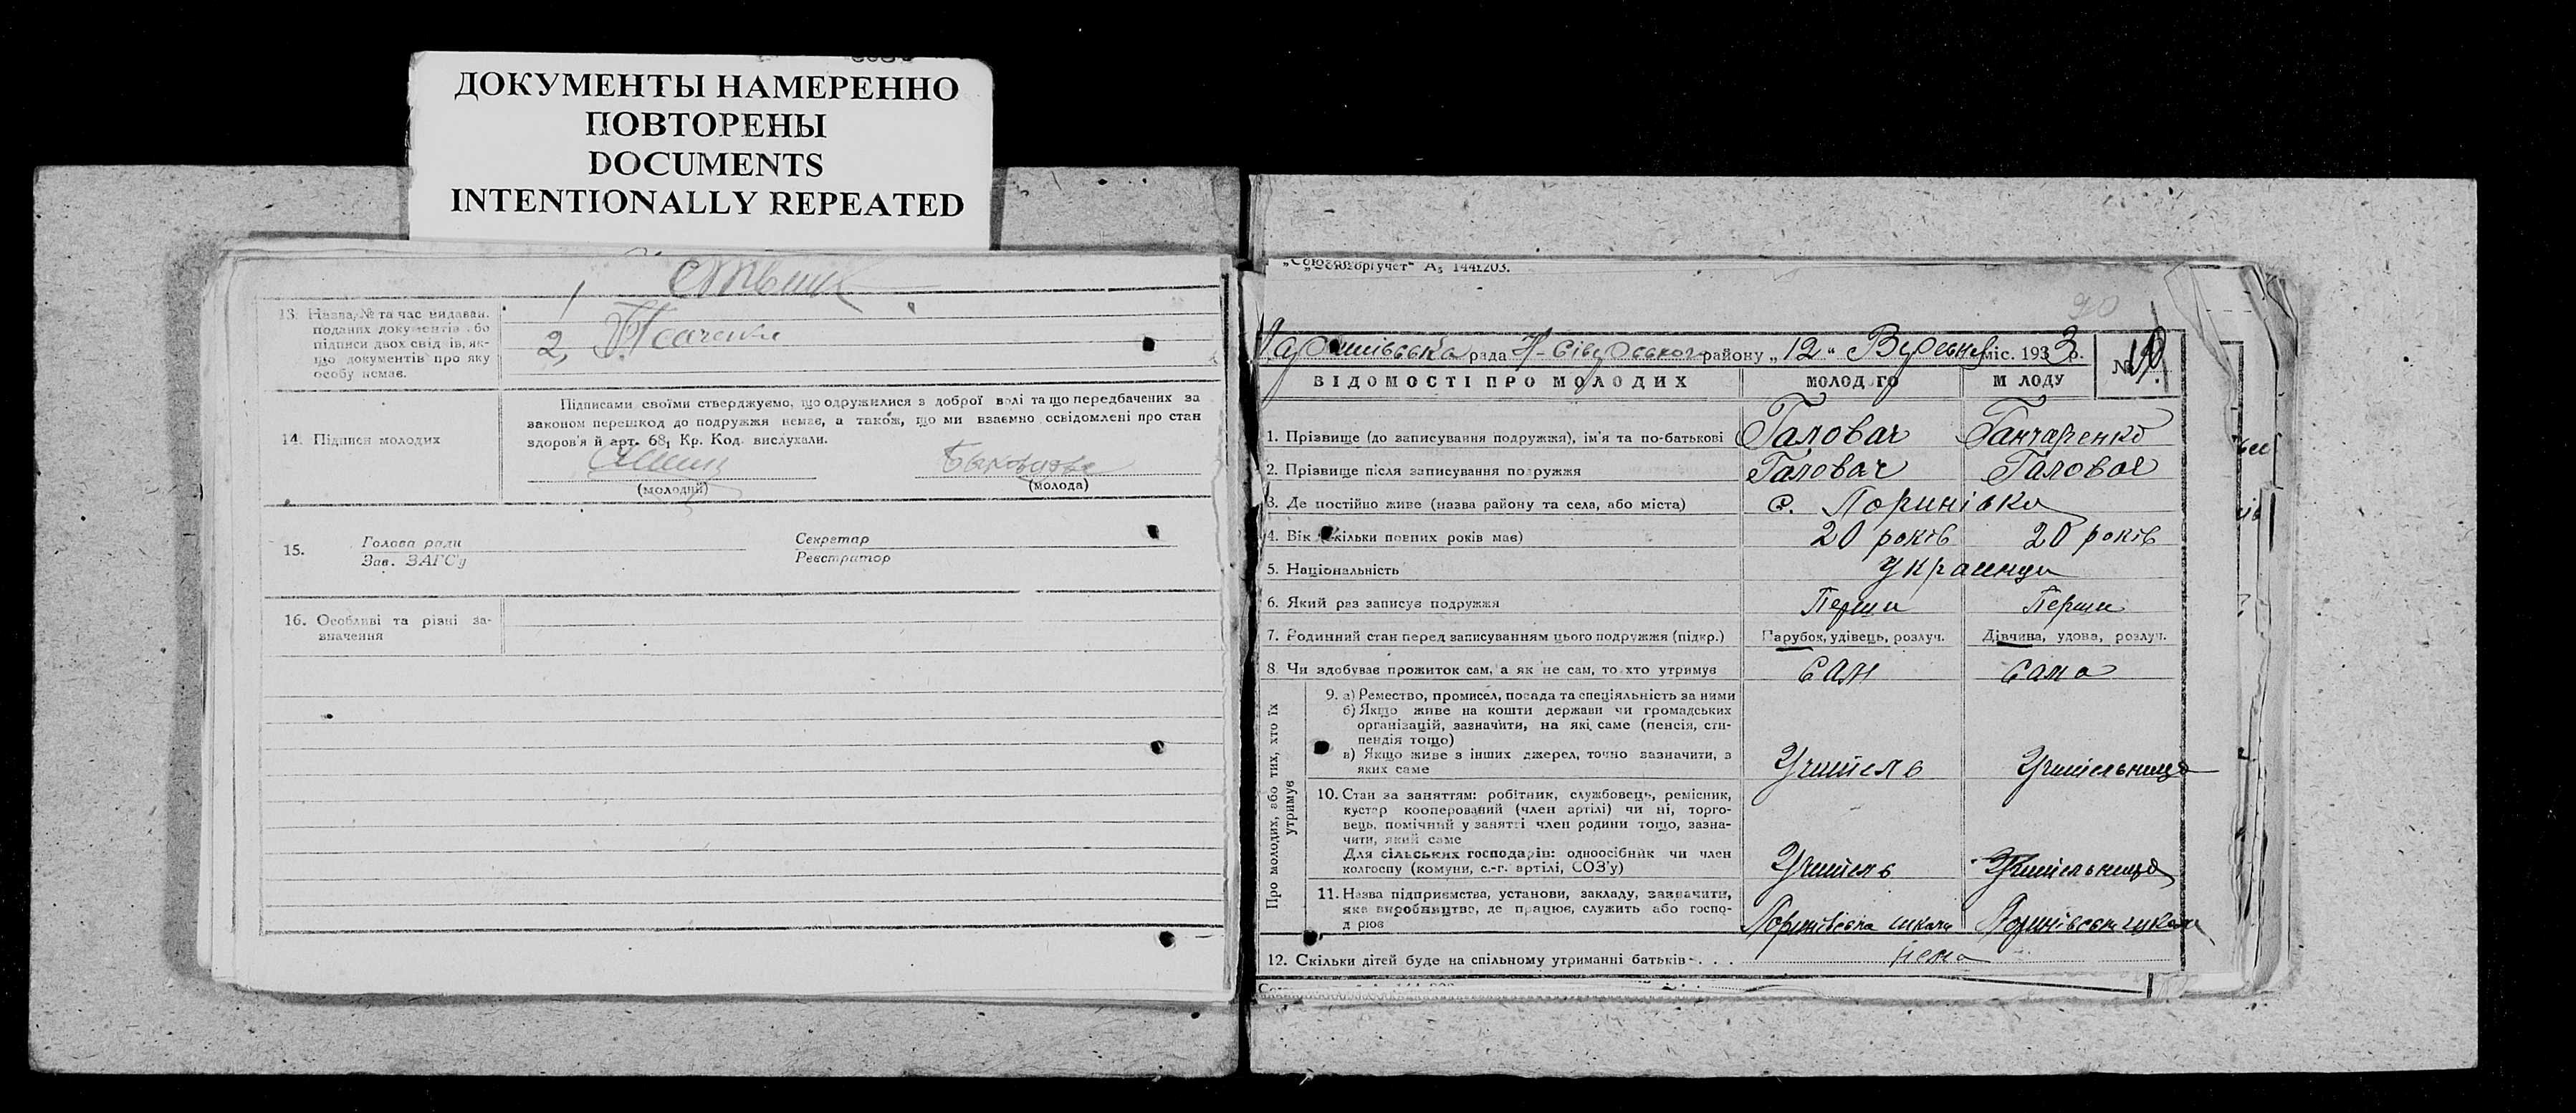 ДОКУМЕНТЫ НАМЕРЕННО
ПОВТОРЕНЫ
DOCUMENTS
INTENTIONALLY REPEATED
13. Назва, № та час видаван.
поданих документів або
підписи двох свідків, як-
що документів про яку
особу немає.
1
2,
14. Підписи молодих
Підписами своїми стверджуємо, що одружилися з доброї волі та що передбачених за
законом перешкод до подружжя немає, а також, що ми взаємно освідомлені про стан
здоров'я й арт. 68, Кр. Код. вислухали.
(молодий)
(молода)
15.
Голова ради
Зав. ЗАГС'у
Секретар
Реєстратор
16. Особливі та різні за-
значення
„Союзоргучет" А₅ 144г.203.
90
рада Н-Сіверського району „12" Вересня міс. 1933 р. №
ВІДОМОСТІ ПРО МОЛОДИХ МОЛОД ГО М ЛОДУ
1. Прізвище (до записування подружжя), ім'я та по-батькові Галовач Ганчаренко
2. Прізвище після записування подружжя Галовач Галовач
3. Де постійно живе (назва району та села, або міста) с. Поринівка
4. Вік (скільки повних років має) 20 років 20 років
5. Національність Украинци
6. Який раз записує подружжя Перши Перши
7. Родинний стан перед записуванням цього подружжя (підкр.) Парубок, удівець, розлуч. Дівчина, удова, розлуч.
8. Чи здобуває прожиток сам, а як не сам, то хто утримує сам сама
Про молодих, або тих, хто їх
утримує
9. а) Ремество, промисел, посада та спеціяльність за ними
б) Якщо живе на кошти держави чи громадських
організацій, зазначити, на які саме (пенсія, сти-
пендія тощо)
в) Якщо живе з інших джерел, точно зазначити, з
яких саме Учитель Учительница
10. Стан за заняттям: робітник, службовець, ремісник,
кустар кооперований (член артілі) чи ні, торго-
вець, помічний у занятті член родини тощо, зазна-
чити, який саме
Для сільських господарів: одноосібник чи член
колгоспу (комуни, с.-г. артілі, СОЗ'у) Учитель Учительница
11. Назва підприємства, установи, закладу, зазначити,
яке виробництво, де працює, служить або госпо-
д рює Поринівска школа Поринівска школа
12. Скільки дітей буде на спільному утриманні батьків . . . нема